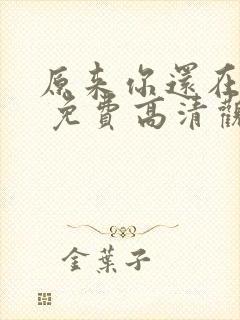 原来你還在
免費高清觀
金葉子